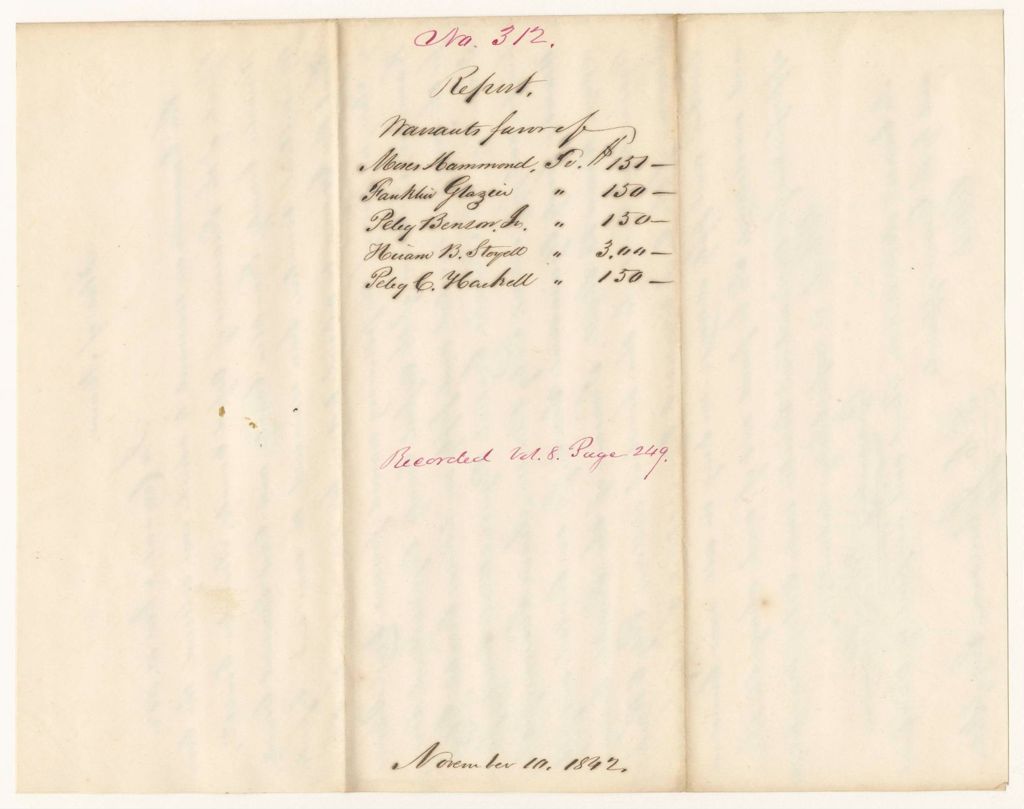 No. 312.
Report.
Warrants favor of
Moses Hammond, Jr. $151 —
Franklin Glazier " 150 —
Peleg Benson, Jr. " 150 —
Hiram B. Stoyell " 3,00 —
Peleg C. Haskell " 150 —
Recorded Vol. 8. Page 249.
November 10. 1842.